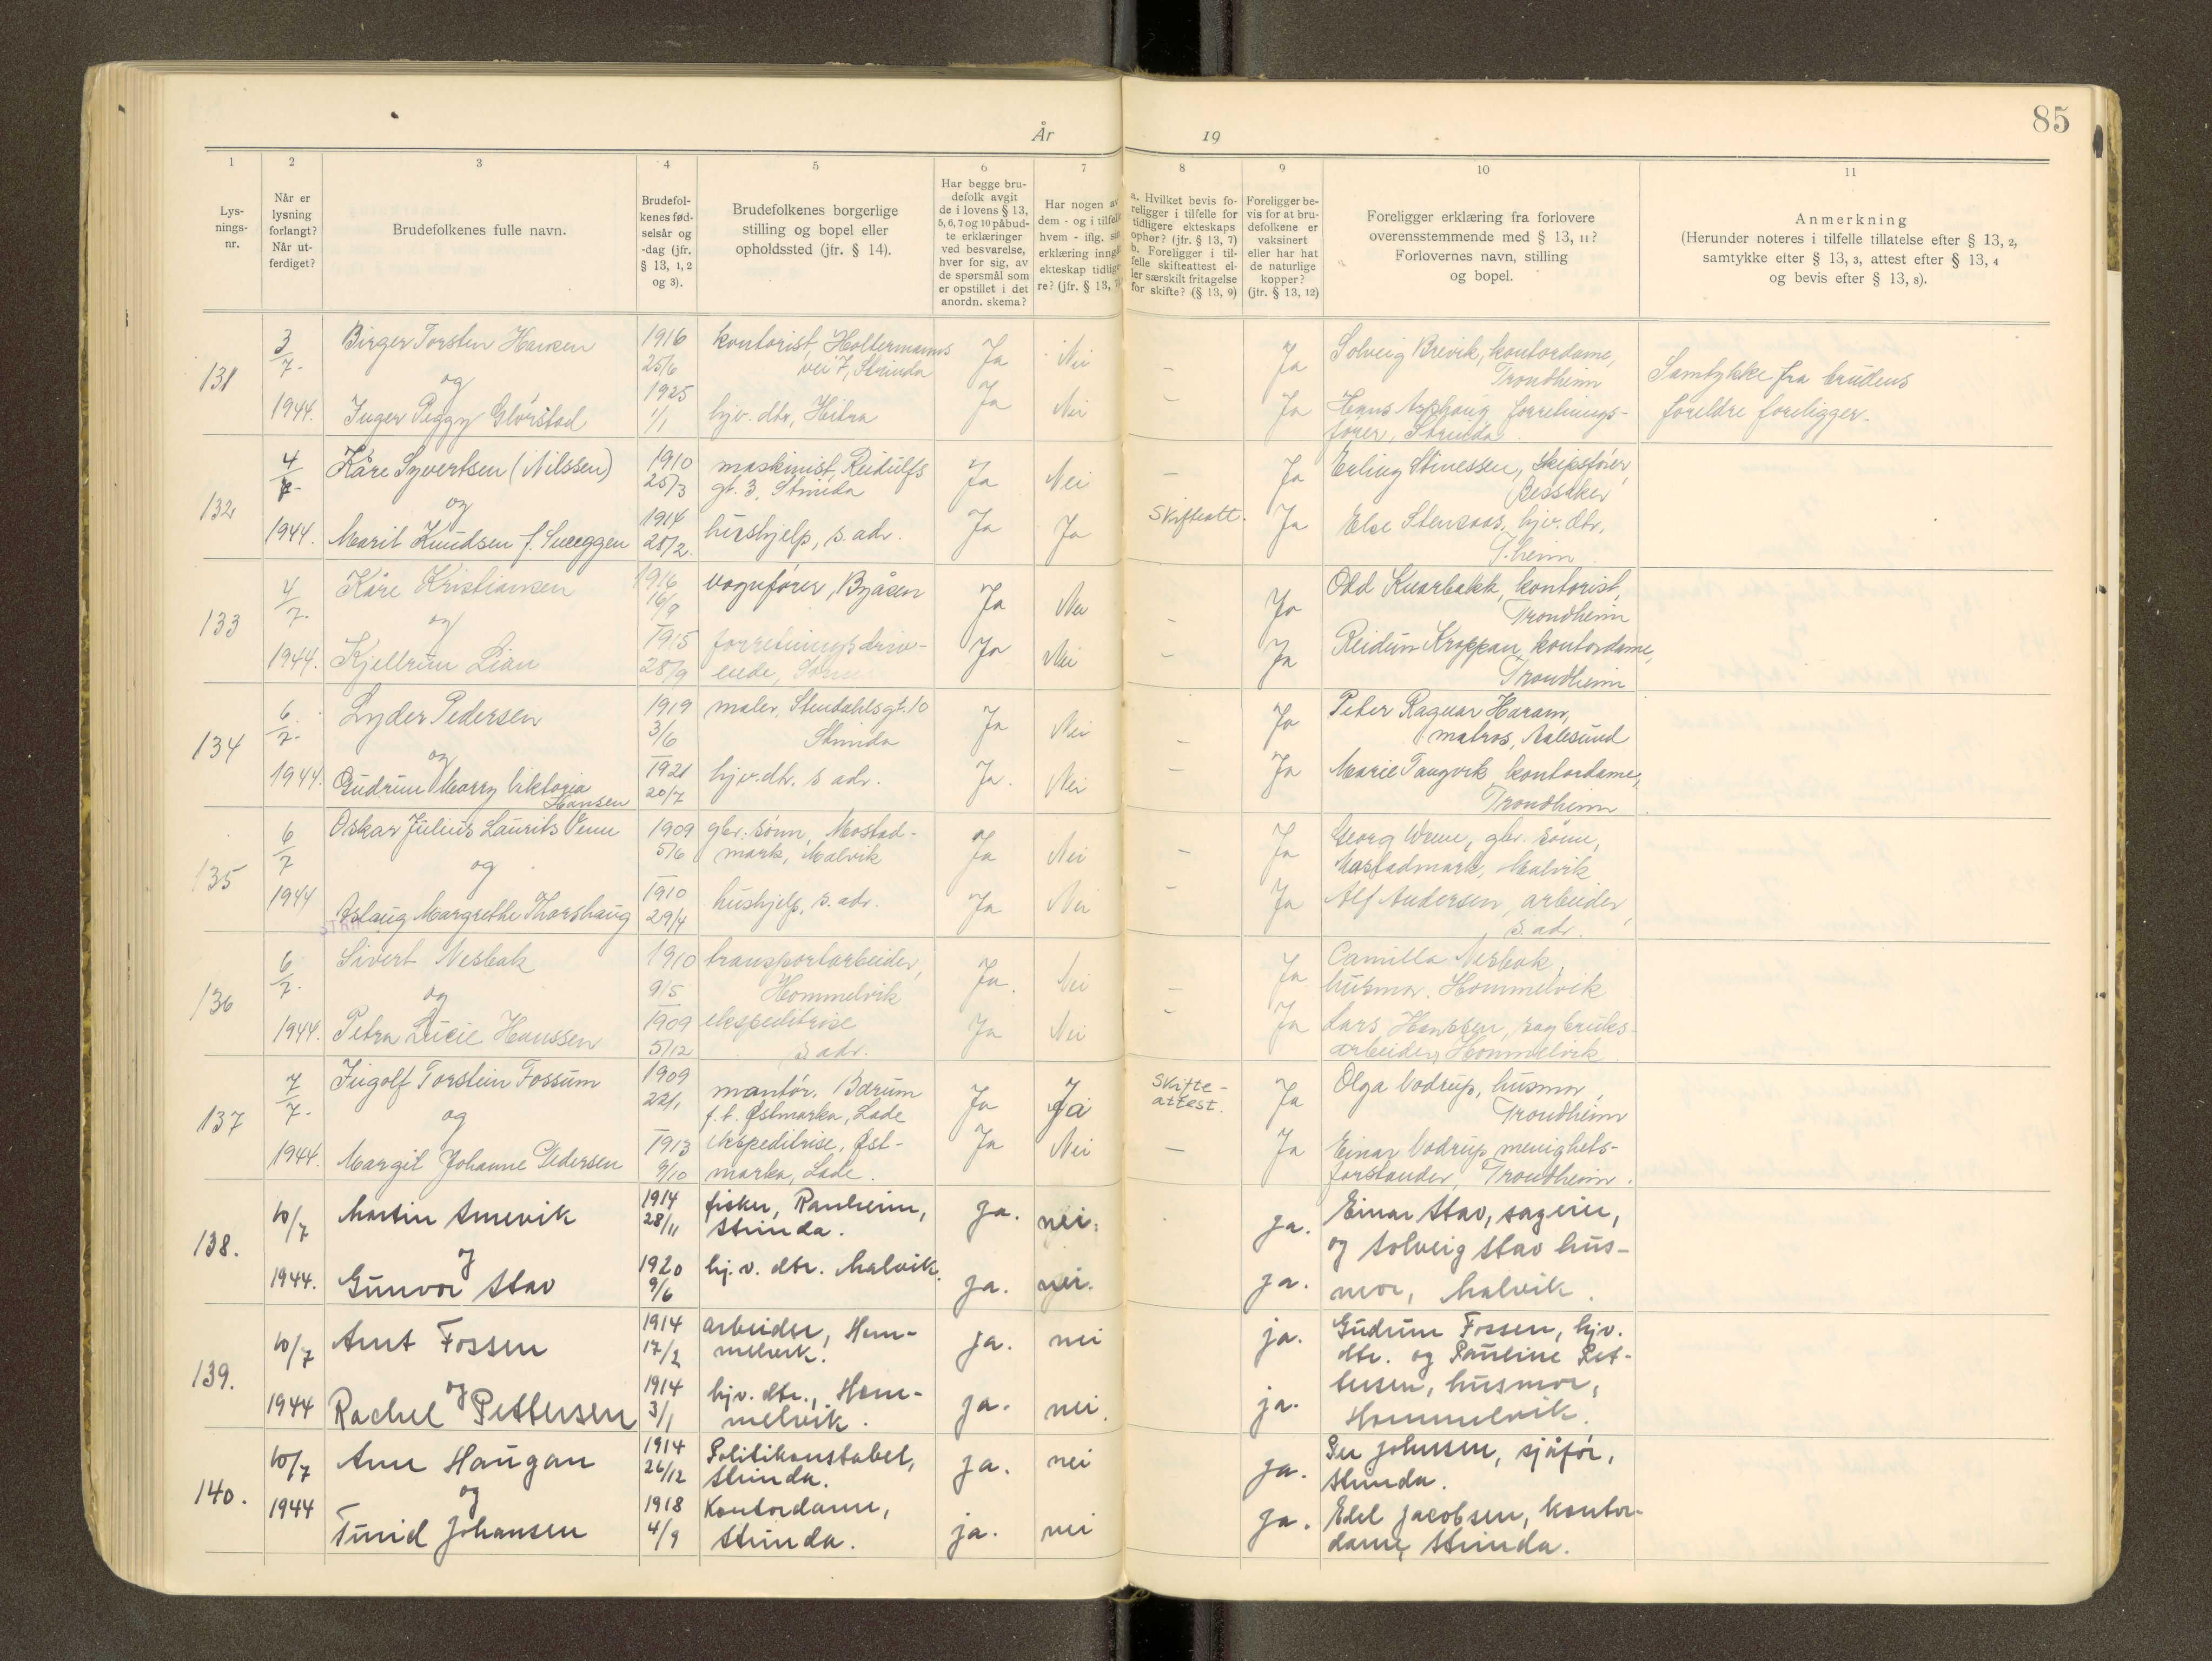 85
År 19
1 2 3 4 5 6 7 8 9 10 11
Lys-
nings-
nr.
Når er
lysning
forlangt?
Når ut-
ferdiget?
Brudefolkenes fulle navn.
Brudefol-
kenes fød-
selsår og
-dag (jfr.
§ 13, 1, 2
og 3).
Brudefolkenes borgerlige
stilling og bopel eller
opholdssted (jfr. § 14).
Har begge bru-
defolk avgit
de i lovens § 13,
5, 6, 7 og 10 påbud-
te erklæringer
ved besvarelse,
hver for sig, av
de spørsmål som
er opstillet i det
anordn. skema?
Har nogen av
dem - og i tilfelle
hvem - iflg. sin
erklæring inngå
ekteskap tidlige-
re? (jfr. § 13, 7)
a. Hvilket bevis fo-
religger i tilfelle for
tidligere ekteskaps
ophør? (jfr. § 13, 7)
b. Foreligger i til-
felle skifteattest el-
ler særskilt fritagelse
for skifte? (§ 13, 9)
Foreligger be-
vis for at bru-
defolkene er
vaksinert
eller har hat
de naturlige
kopper?
(jfr. § 13, 12)
Foreligger erklæring fra forlovere
overensstemmende med § 13, 11?
Forlovernes navn, stilling
og bopel.
Anmerkning
(Herunder noteres i tilfelle tillatelse efter § 13, 2,
samtykke efter § 13, 3, attest efter § 13, 4
og bevis efter § 13, 8).
131
3/7.
1944.
Birger Torsten Hansen
og
Inger Peggy Glørstad
1916
25/6
1925
1/1
kontorist, Holtermanns
vei 7, Strinda
hjv. dtr, Hitra
Ja Nei – Ja
Ja Nei – Ja
Solveig Brevik, kontordame,
Trondheim
Hans Asphaug forretnings-
fører, Strinda.
Samtykke fra brudens
foreldre foreligger.
132
4/7.
1944.
Kåre Syvertsen (Nilssen)
og
Marit Knudsen f. Sneeggen
1910
25/3
1914
28/2.
maskinist, Reidulfs
gt. 3, Strinda
hushjelp, s. adr.
Ja Nei – Ja
Ja Ja Skifteatt. Ja
Erling Stinessen, skipsfører,
Bessaker
Else Stensaas, hjv. dtr,
T.heim
133
4/7.
1944.
Kåre Kristiansen
og
Kjellrun Lian
1916
16/9
1915
28/9
vognfører, Byåsen
forretningsdriv-
ende,
Ja Nei – Ja
Ja Nei – Ja
Odd Kvarbakk, kontorist,
Trondheim
Reidun Kroppan, kontordame,
Trondheim
134
6/7.
1944.
Lyder Pedersen
og
Gudrun Marry Viktoria
Hansen
1919
3/6
1921
20/7
maler, Stendahlsgt. 10
Strinda
hjv. dtr. s adr.
Ja Nei – Ja
Ja. Nei – Ja
Peter Ragnar Haram,
matros, Aalesund
Marie Tangvik, kontordame,
Trondheim
135
6/7
1944
Oskar Julius Laurits Venn
og
Aslaug Margrethe Thorshaug
1909
5/6
1910
29/4
gbr. sønn, Mostad-
mark, Malvik
hushjelp, s. adr.
Ja Nei – Ja
Ja Nei – Ja
Georg Wenn, gbr. sønn,
Mostadmark, Malvik
Alf Andersen, arbeider,
s. adr.
136
6/7.
1944.
Sivert Nesbak
og
Petra Lucie Hanssen
1910
9/5
1909
5/12
transportarbeider,
Hommelvik
ekspeditrise
s. adr.
Ja. Nei – Ja
Ja Nei – Ja
Camilla Nesbak,
husmor. Hommelvik
Lars Hanssen, sagbruks-
arbeider, Hommelvik
137
7/7.
1944.
Ingolf Torstein Fossum
og
Margit Johanne Pedersen
1909
22/1
1913
9/10
montør, Bærum
f. t. Østmarka, Lade
ekspeditrise, Øst-
marka, Lade.
Ja Ja Skifte-
attest. Ja
Ja Nei – Ja
Olga Vodrup, husmor,
Trondheim
Einar Vodrup menighets-
forstander, Trondheim.
138.
10/7
1944.
Martin Amevik
og
Gunvor Stav
1914
28/11
1920
9/6
fisker, Ranheim,
Strinda.
hj. v. dtr. Malvik.
ja. nei. ja.
ja. nei. ja.
Einar Stav, sageier,
og Solveig Stav hus-
mor, Malvik.
139.
10/7
1944
Arnt Fossen
og
Rachel Pettersen
1914
17/2
1914
3/1
arbeider, Hom-
melvik.
hjv. dtr., Hom-
melvik.
ja. nei ja.
ja. nei. ja.
Gudrun Fossen, hjv.
dtr. og Pauline Pet-
tersen, husmor,
Hommelvik.
140.
10/7
1944
Arne Haugan
og
Turid Johansen
1914
26/12
1918
4/9
Politikonstabel,
Strinda.
Kontordame,
Strinda.
ja. nei ja.
ja. nei ja.
Per Johnsen, sjåfør,
Strinda.
Edel Jacobsen, kontor-
dame, Strinda.